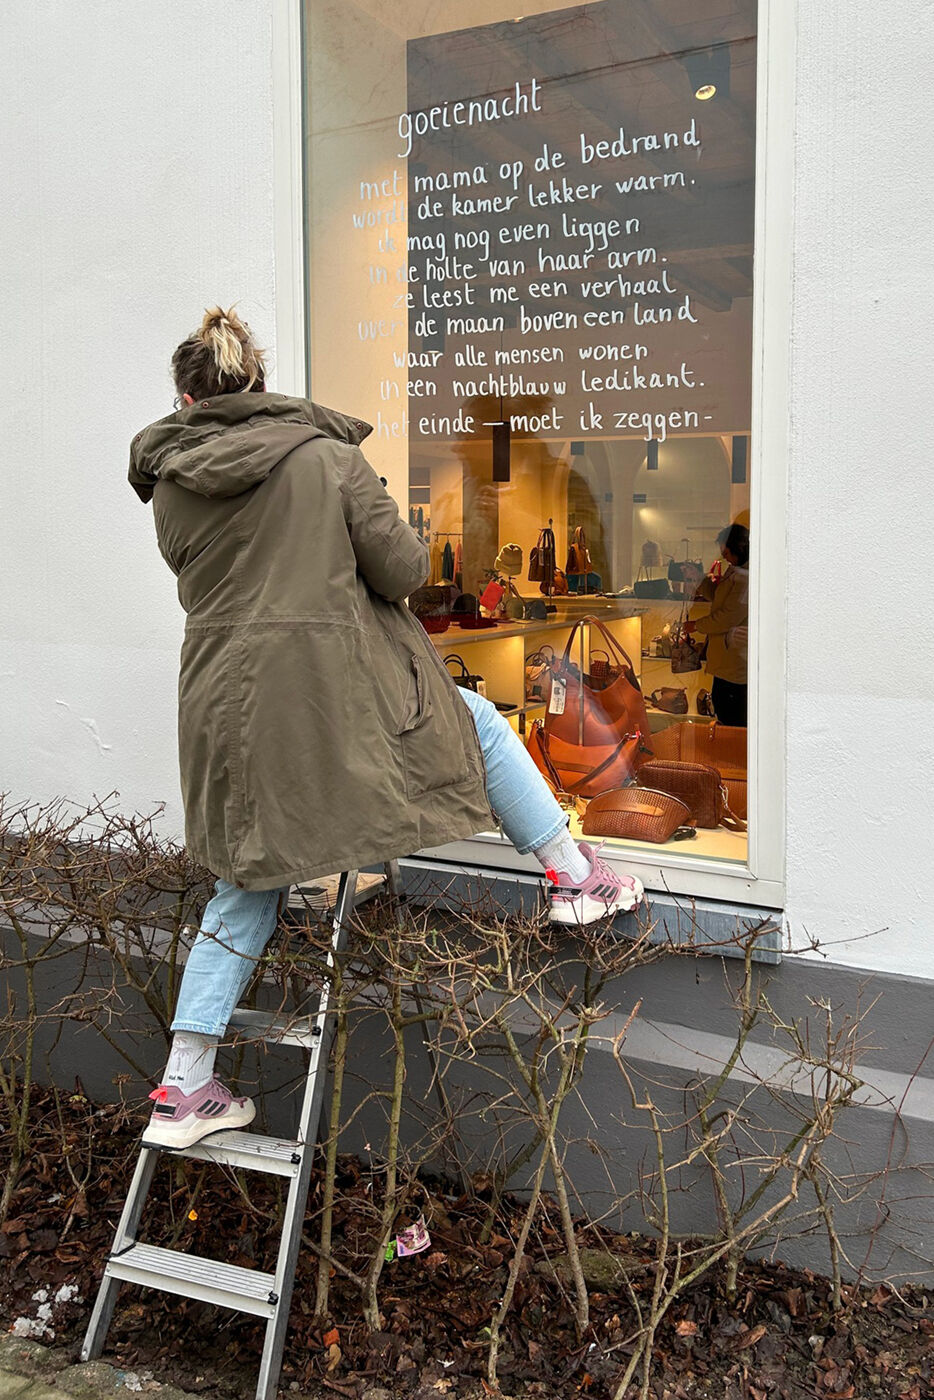 goeienacht
met mama op de bedrand
wordt de kamer lekker warm.
ik mag nog even liggen
in de holte van haar arm.
ze leest me een verhaal
over de maan boven een land
waar alle mensen wonen
in een nachtblauw ledikant.
het einde — moet ik zeggen -